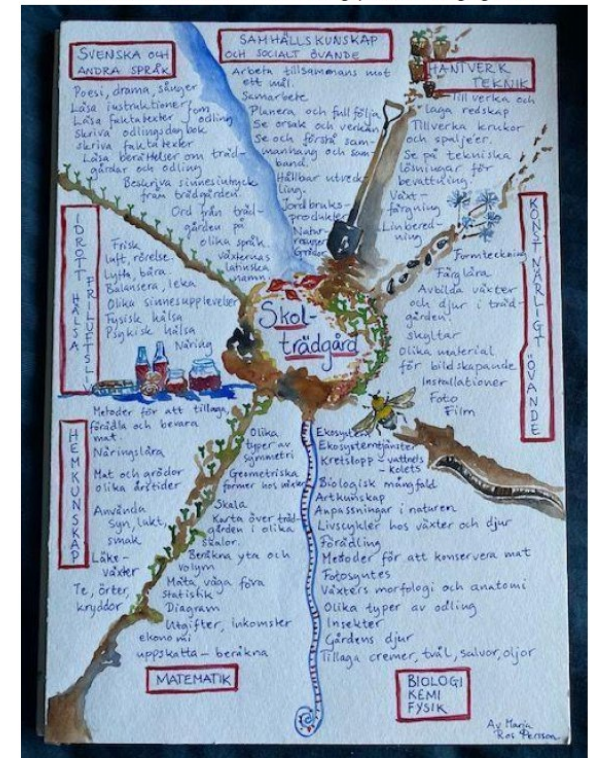 SVENSKA OCH
ANDRA SPRÅK
Poesi, drama, sånger
Läsa instruktioner om
Läsa faktatexter odling
Skriva odlingsdagbok
skriva faktatexter
Läsa berättelser om träd-
gårdar och odling
Beskriva sinnesintryck
från trädgården.
Ord från träd-
gården på
olika språk
växternas
latinska
namn
SAMHÄLLSKUNSKAP
OCH SOCIALT ÖVANDE
Arbeta tillsammans mot
ett mål.
Samarbete
Planera och fullfölja
Se orsak och verkan
Se och förstå sam-
manhang och sam-
band.
Hållbar utveck-
ling.
Jordbruks-
produkter
Natur-
Grödor
HANTVERK
TEKNIK
Tillverka och
laga redskap
Tillverka krukor
och spaljéer.
Se på tekniska
lösningar för
bevattning.
Växt-
färgning
Linbered-
ning
KONSTNÄRLIGT ÖVANDE
Formteckning
Färglära
Avbilda växter
och djur i träd-
gården.
Skyltar
Olika material
för bildskapande
Installationer
Foto
Film
IDROTT HÄLSA
FRILUFTSLIV
Frisk
luft, rörelse.
Lyfta, bära.
Balansera, leka
Olika sinnesupplevelser
Fysisk hälsa
Psykisk hälsa
Näring
Skol-
trädgård
HEMKUNSKAP
Metoder för att tillaga,
förädla och bevara
mat.
Näringslära
Mat och grödor
olika årstider
Använda
Syn, lukt,
smak
Läke-
växter
Te, örter,
kryddor
Olika
typer av
symmetri
Geometriska
former hos växter
Skala
Karta över träd-
gården i olika
skalor.
Beräkna yta och
volym
Mäta, väga föra
statistik
Diagram
Utgifter, inkomster
ekonomi
uppskatta – beräkna
MATEMATIK
Ekosystem
Ekosystemtjänster
Kretslopp – vattnets
– kolets
Biologisk mångfald
Artkunskap
Anpassningar i naturen
Livscykler hos växter och djur
Förädling
Metoder för att konservera mat
Fotosyntes
Växters morfologi och anatomi
Olika typer av odling
Insekter
Gårdens djur
Tillaga cremer, tvål, salvor, oljor
BIOLOGI
KEMI
FYSIK
Av Maria
Ros Persson